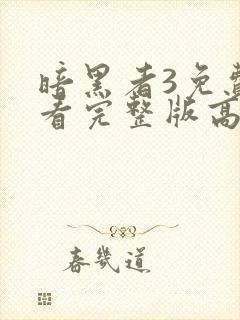 暗黑者3免费
看完整版高
春几道